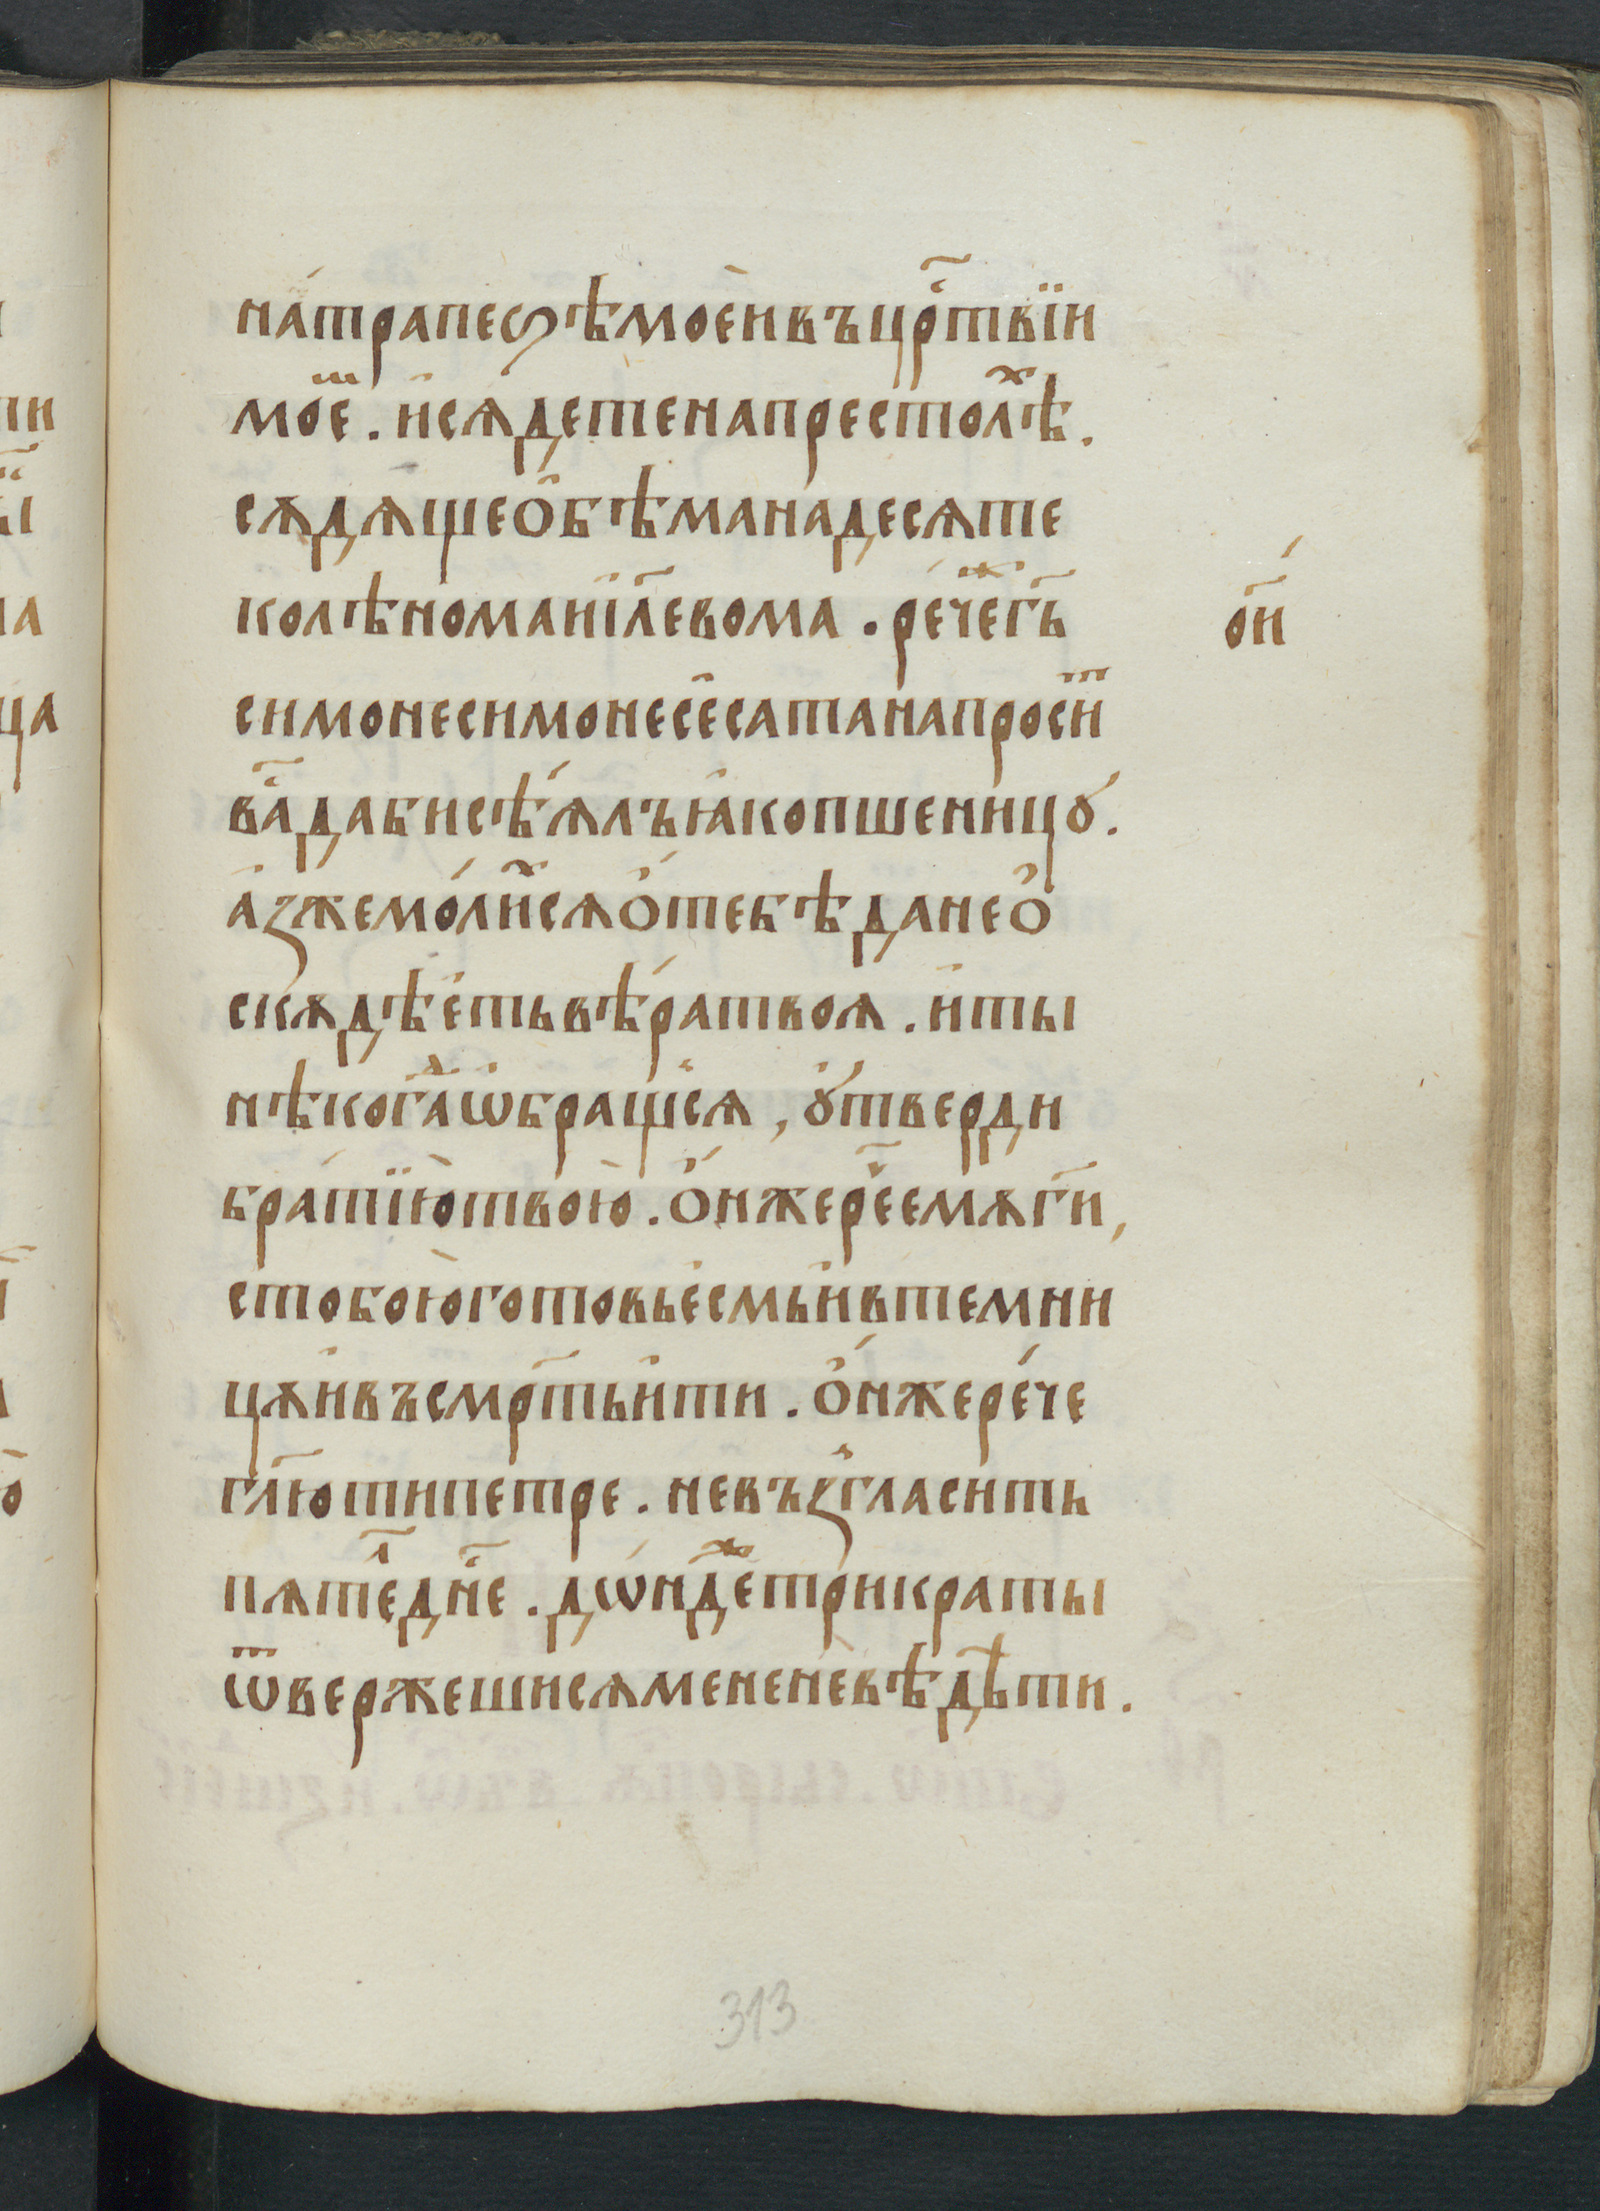 на́трапеѕѣмоѐивъцр҇твїи
мое҇ⷨ. и҆сѧ́детенапрестолѣⷯ.
сѫдѧщео҆бѣманадесѧте
колѣноманіи҃левома. ре́чеⷤгь҃
симонесимонесе҆сатанапросиⷮ
ва҇дабисѣ́ѧлъꙗ҆копшеницꙋ́.
а҆зжемо́лиⷯсѧѻ҆тебѣданеѻ҆
скѫдѣе҆тьвѣ́ратвоѧ. и҆ты
нѣкогаⷣѡ҆бращ҆сѧ, ꙋ҆́тверди
бра́тїю̀твою̀. ѻ҆́нжере҇чемѫги҃,
стобою̀готовье҆смьи҆втемни
цѫи҆въсмр҃тьи҆ти. ѻ҆́нжере́че
гл҃ютипетре. невъзгласить
пѫте҇ⷧдн҇е. дѡ́ндеⷤтрикраты
ѿвержешисѧмененевѣдѣ̀ти.
ѻ҃н
313